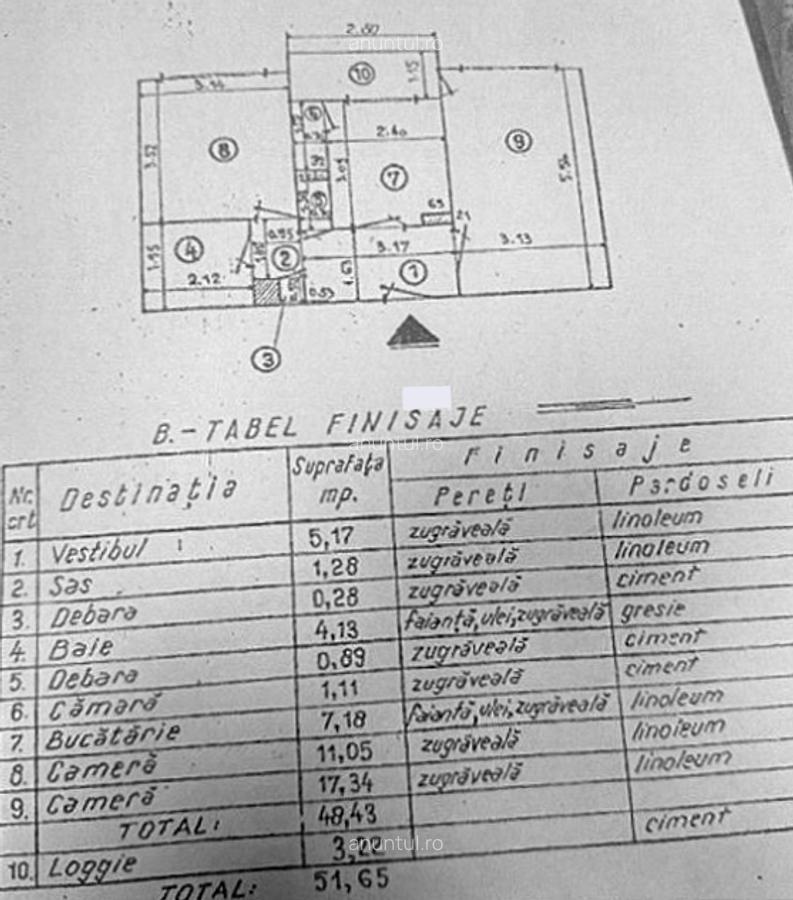 2.80
anuntul.ro
10
1.15
3.14
6
2.60
3.52
8
3.09
7
9
5.54
5
63
21
4
1.95
0.95
2
3.17
3.13
2.12
1.63
1
0.53
3
B.-TABEL FINISAJE
anuntul.ro
Nr. crt Destinaţia Suprafaţa mp. Finisaje
Pereţi Pardoseli
1. Vestibul 5,17 zugrăveală linoleum
2. Sas 1,28 zugrăveală linoleum
3. Debara 0,28 zugrăveală ciment
4. Baie 4,13 faianţă, ulei, zugrăveală gresie
5. Debara 0,89 zugrăveală ciment
6. Cămară 1,11 zugrăveală ciment
7. Bucătărie 7,18 faianţă, ulei, zugrăveală linoleum
8. Cameră 11,05 zugrăveală linoleum
9. Cameră 17,34 zugrăveală linoleum
TOTAL: 48,43
10. Loggie 3,22 ciment
anuntul.ro
TOTAL: 51,65